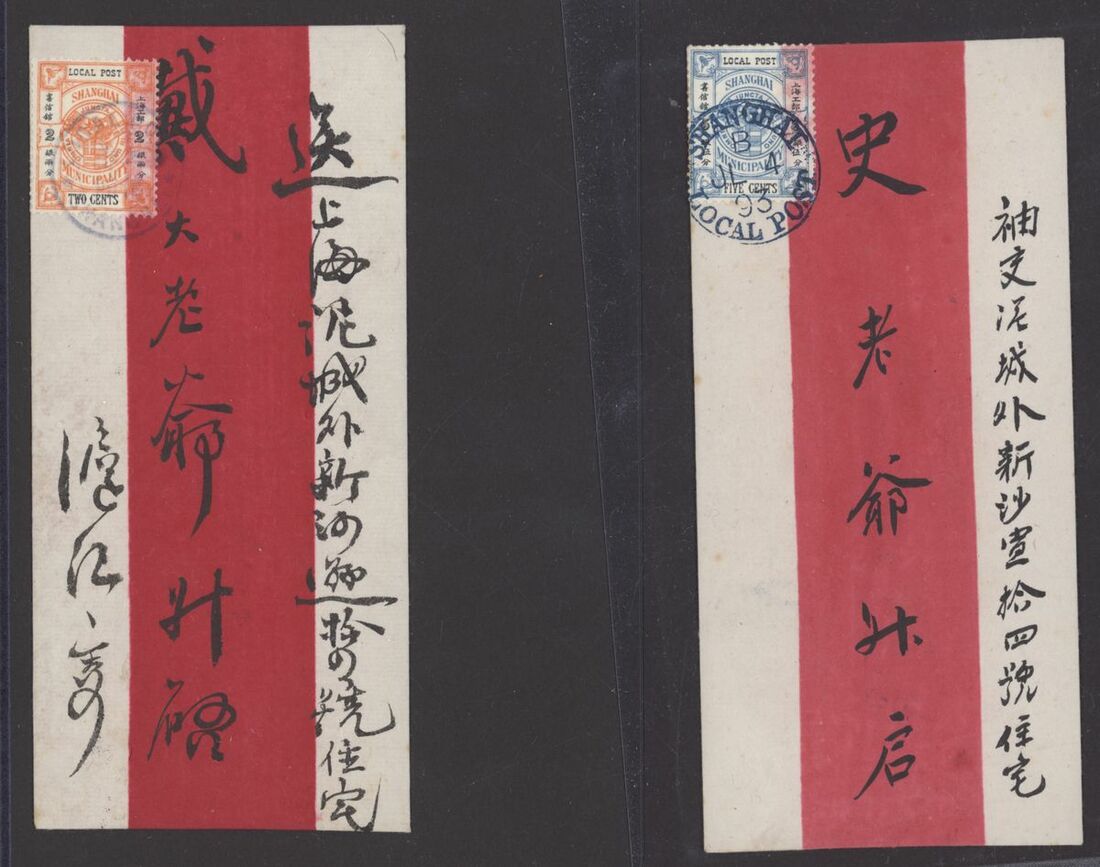 LOCAL POST
SHANGHAI
MUNICIPALITY
TWO CENTS
書信館
上海工部
送上海泥城外新沙遜拾四號住宅
戴大老爺升啟
滬江
LOCAL POST
SHANGHAI
MUNICIPALITY
FIVE CENTS
書信館
上海工部
SHANGHAI
B
JUL 4
93
LOCAL POST
袖交泥城外新沙宣拾四號住宅
史老爺升启